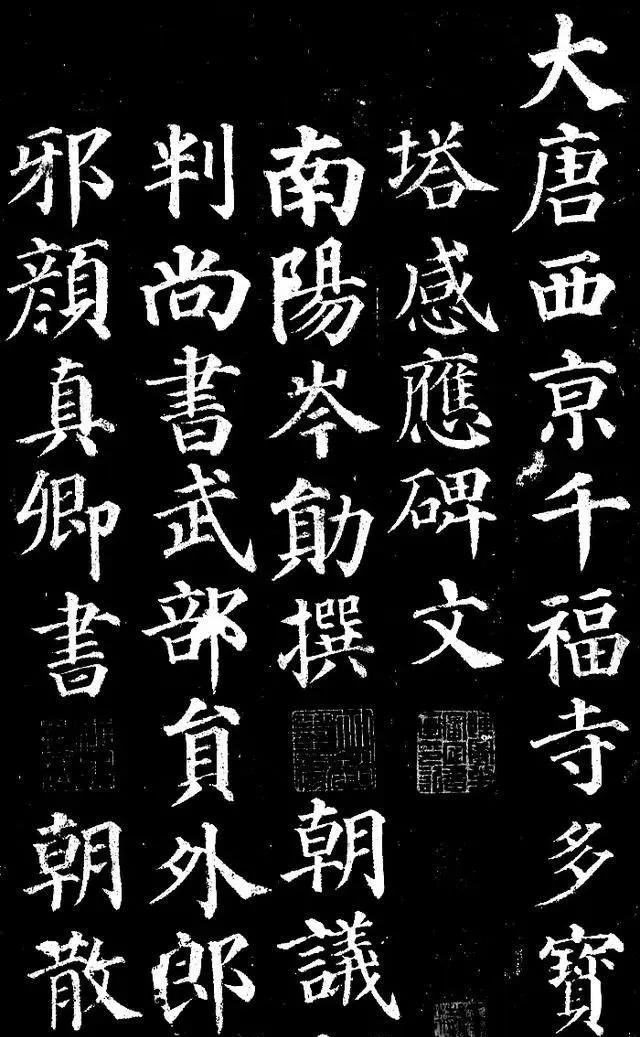 大唐西京千福寺多寶
塔感應碑文
南陽岑勛撰 朝議
判尚書武部員外郎
邪顏真卿書 朝散